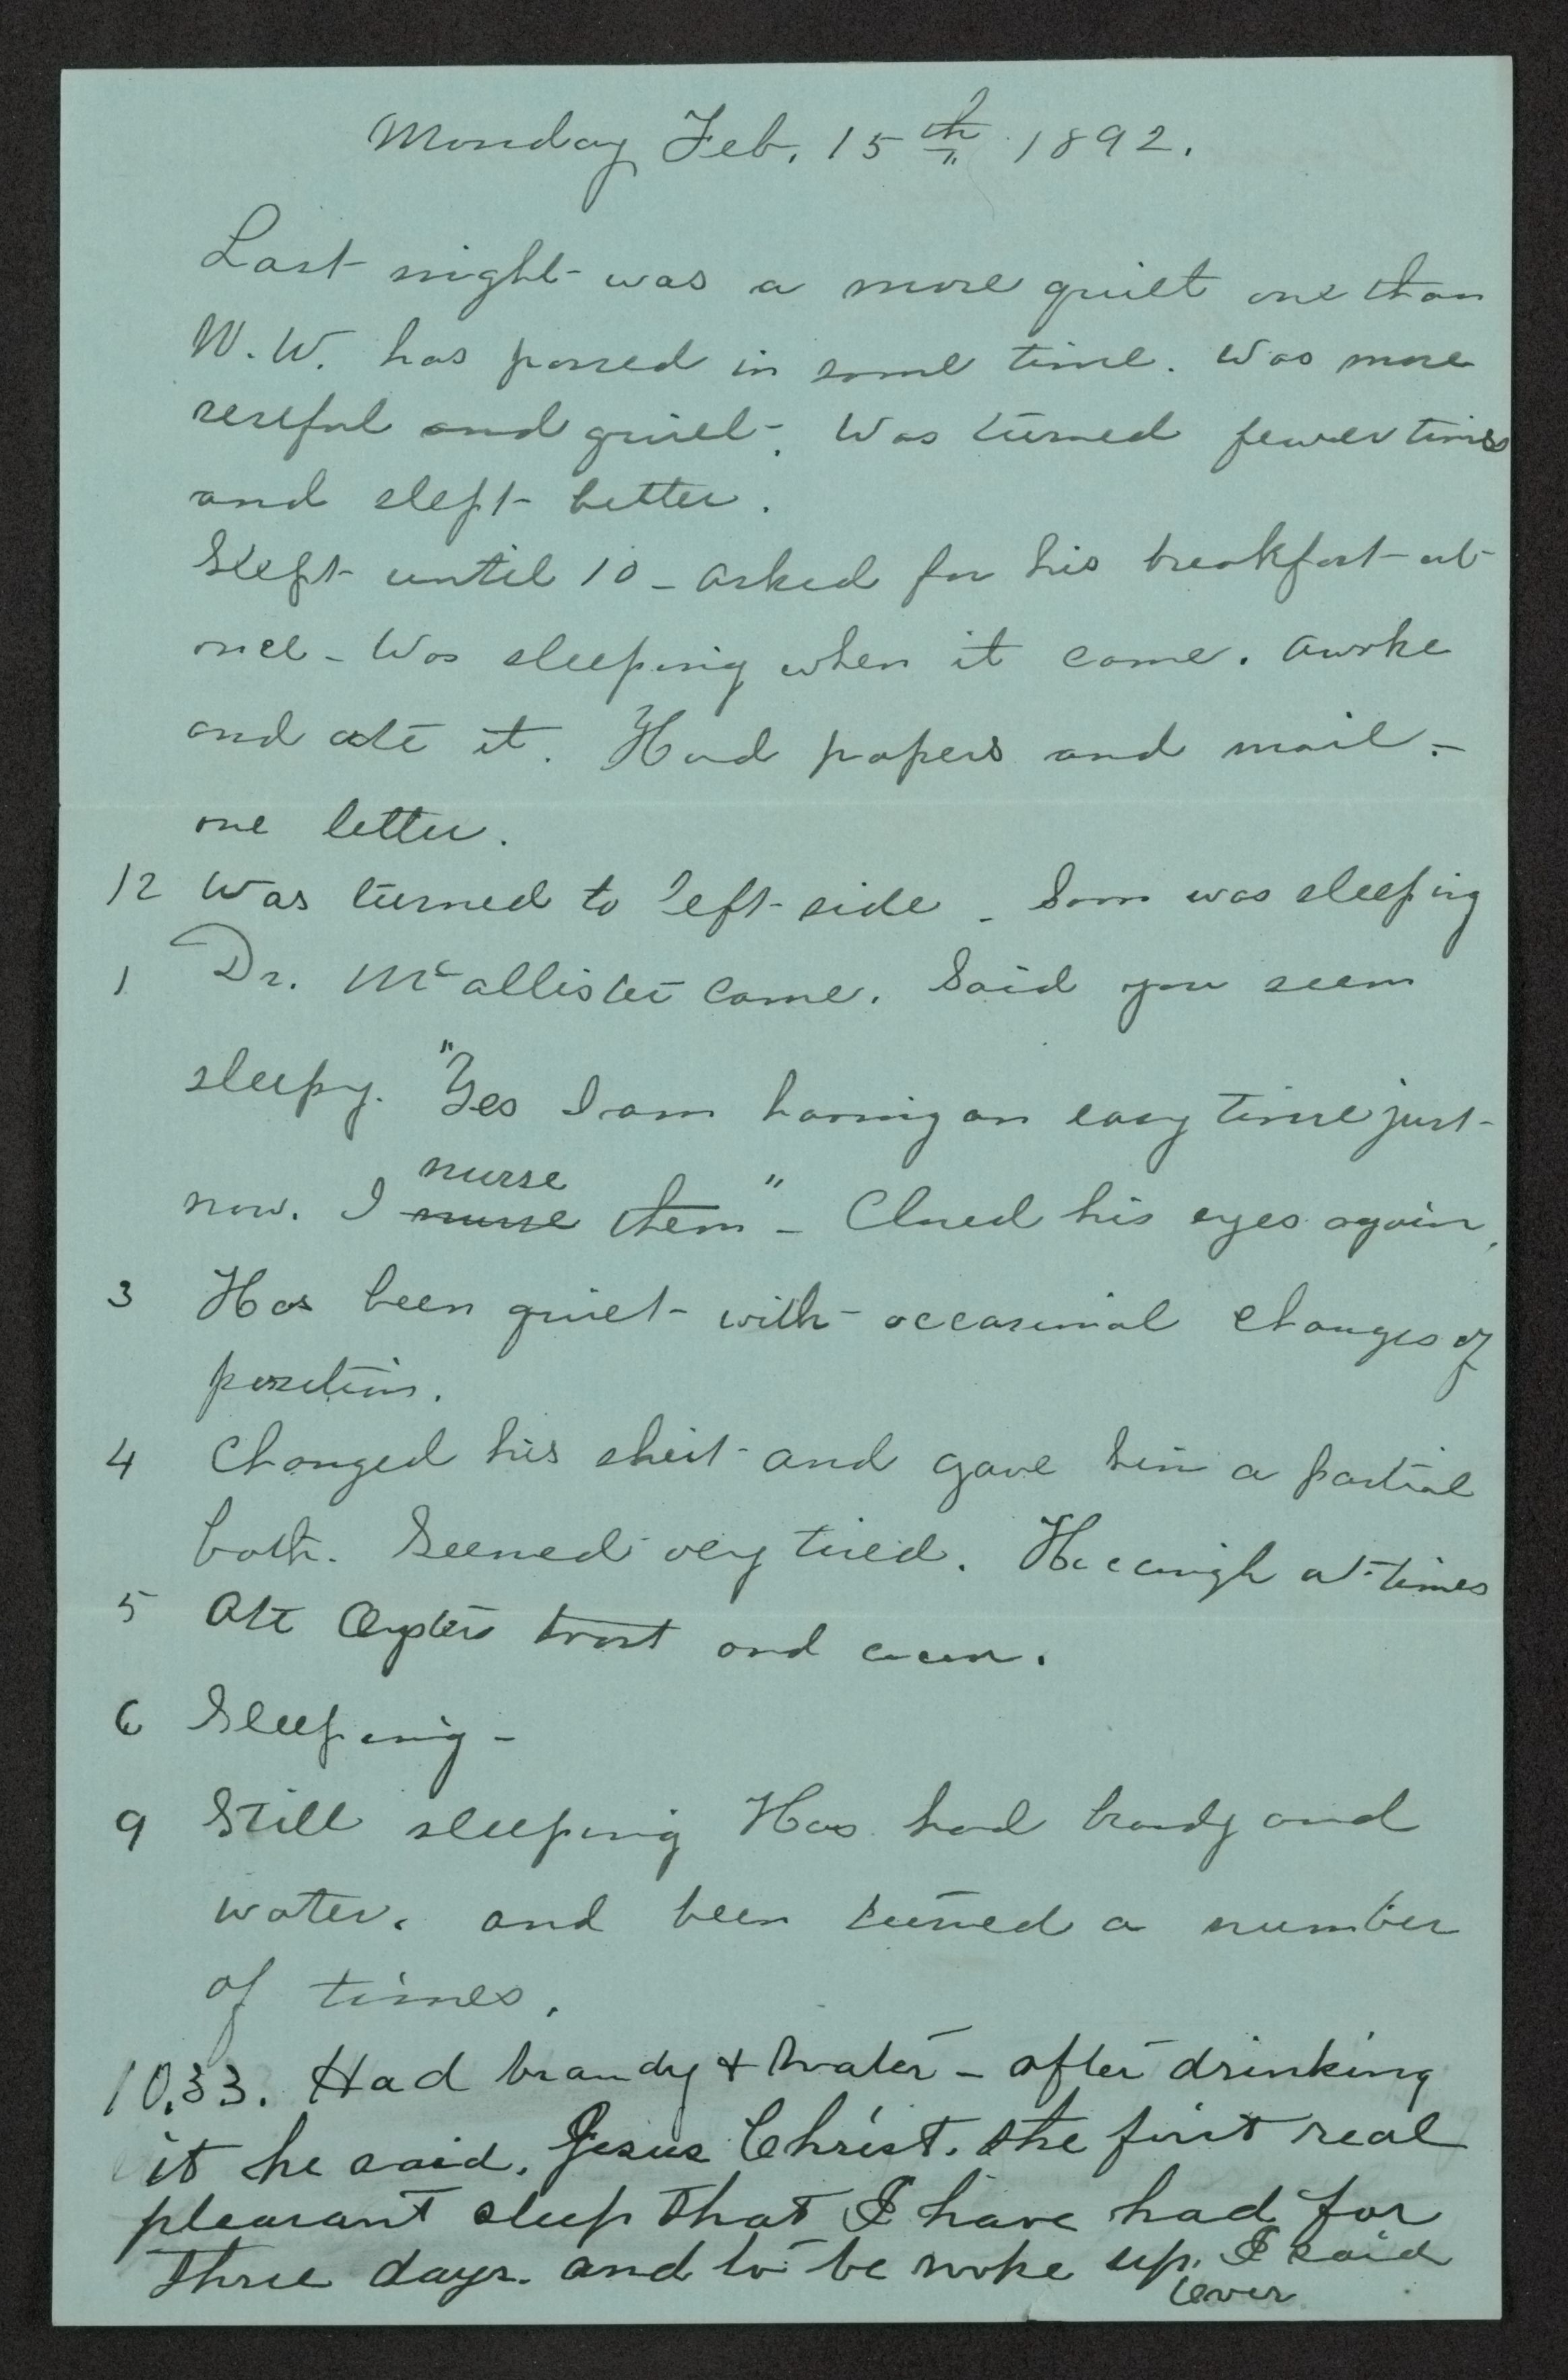 Monday Feb. 15th 1892.
Last night was a more quiet one than
W. W. has passed in some time. Was more
restful and quiet. Was turned fewer times
and slept better.
Slept until 10 - asked for his breakfast at
once - Was sleeping when it came. Awoke
and ate it. Had papers and mail. -
one letter.
12 Was turned to left side - Soon was sleeping
1 Dr. McAllister came. Said you seem
sleepy. "Yes I am having an easy time just
now. I nurse them" - Closed his eyes again.
nurse
3 Has been quiet with occasional changes of
position.
4 Changed his shirt and gave him a partial
bath. Seemed very tired. Hiccough at times
5 Ate Oysters toast and
6 Sleeping -
9 Still sleeping Has had brandy and
water. and been turned a number
of times.
10.33. Had brandy & water - after drinking
it he said. Jesus Christ. the first real
pleasant sleep that I have had for
three days. and to be woke up. I said
Over